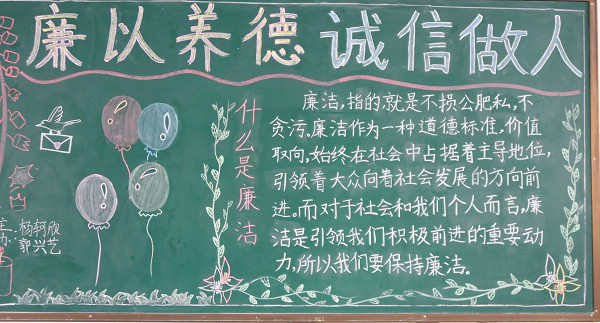 廉以养德 诚信做人
什么是廉洁
廉洁,指的就是不损公肥私,不
贪污.廉洁作为一种道德标准,价值
取向,始终在社会中占据着主导地位,
引领着大众向着社会发展的方向前
进.而对于社会和我们个人而言,廉
洁是引领我们积极前进的重要动
力,所以我们要保持廉洁。
杨轲欣
郭兴艺